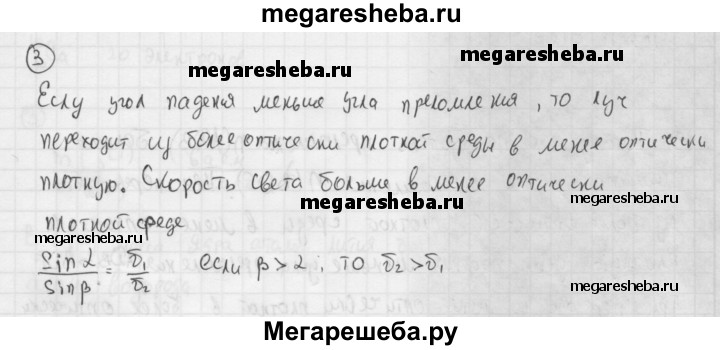 megaresheba.ru
3
megaresheba.ru
megaresheba.ru
megaresheba.ru
Если угол падения меньше угла преломления, то луч
переходит из более оптически плотной среды в менее оптически
плотную. Скорость света больше в менее оптически
megaresheba.ru
плотной среде
megaresheba.ru
sin α / sin β = υ₁ / υ₂ если β > α, то υ₂ > υ₁
megaresheba.ru
Мегарешеба.ру